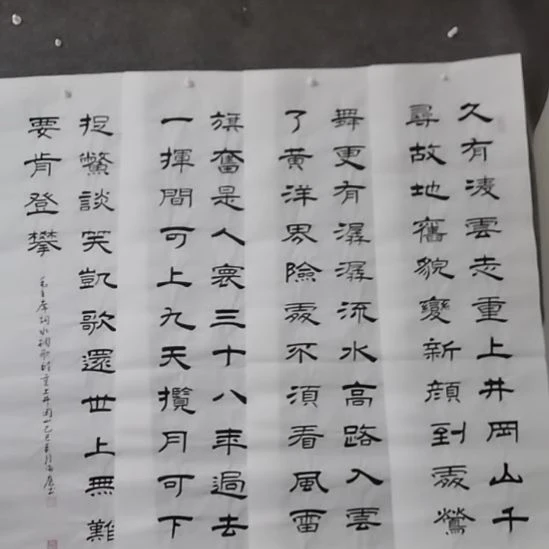 久有凌雲志重上井岡山千
尋故地舊貌變新顏到處鶯
舞更有潺潺流水高路入雲
了黃洋界險處不須看風雷
旗奮是人寰三十八年過去
一揮間可上九天攬月可下
捉鱉談笑凱歌還世上無難
要肯登攀
毛主席詞水調歌頭重上井岡山乙巳年